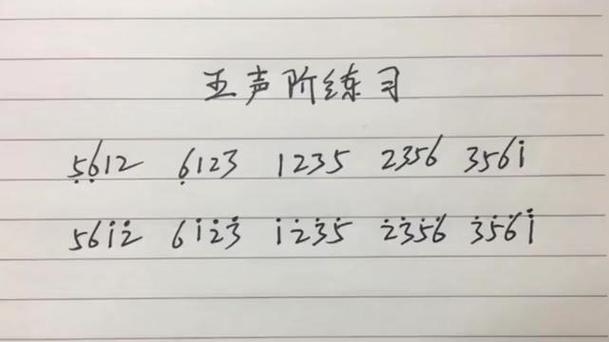 五声阶练习
5̣6̣12 6̣123 1235 2356 356i̇
56i̇2̇ 6i̇2̇3̇ i̇2̇3̇5̇ 2̇3̇5̇6̇ 3̇5̇6̇ï